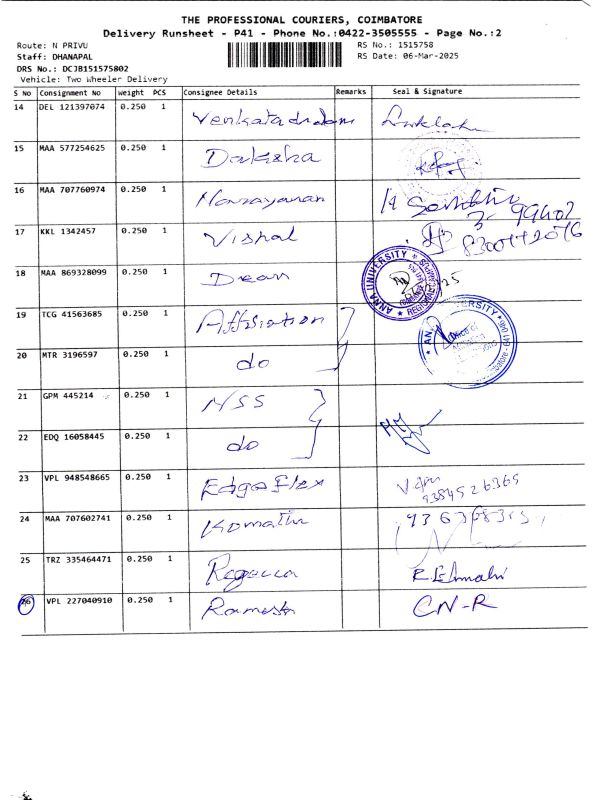 THE PROFESSIONAL COURIERS, COIMBATORE
Delivery Runsheet - P41 - Phone No.:0422-3505555 - Page No.:2
Route: N PRIVU RS No.: 1515758
Staff: DHANAPAL RS Date: 06-Mar-2025
DRS No.: DCJB151575802
Vehicle: Two Wheeler Delivery
S No Consignment No weight PCS Consignee Details Remarks Seal & Signature
14 DEL 121397074 0.250 1
15 MAA 577254625 0.250 1 Daksha
16 MAA 707760974 0.250 1 Narayanan
17 KKL 1342457 0.250 1 Vishal
18 MAA 869328099 0.250 1 Dean
ANNA UNIVERSITY
19 TCG 41563685 0.250 1
20 MTR 3196597 0.250 1 do
21 GPM 445214 0.250 1 NSS
22 EDQ 16058445 0.250 1 do
23 VPL 948548665 0.250 1 EdgeFlex
9384526365
24 MAA 707602741 0.250 1
25 TRZ 335464471 0.250 1
26 VPL 227040910 0.250 1 Ramesh CN-R